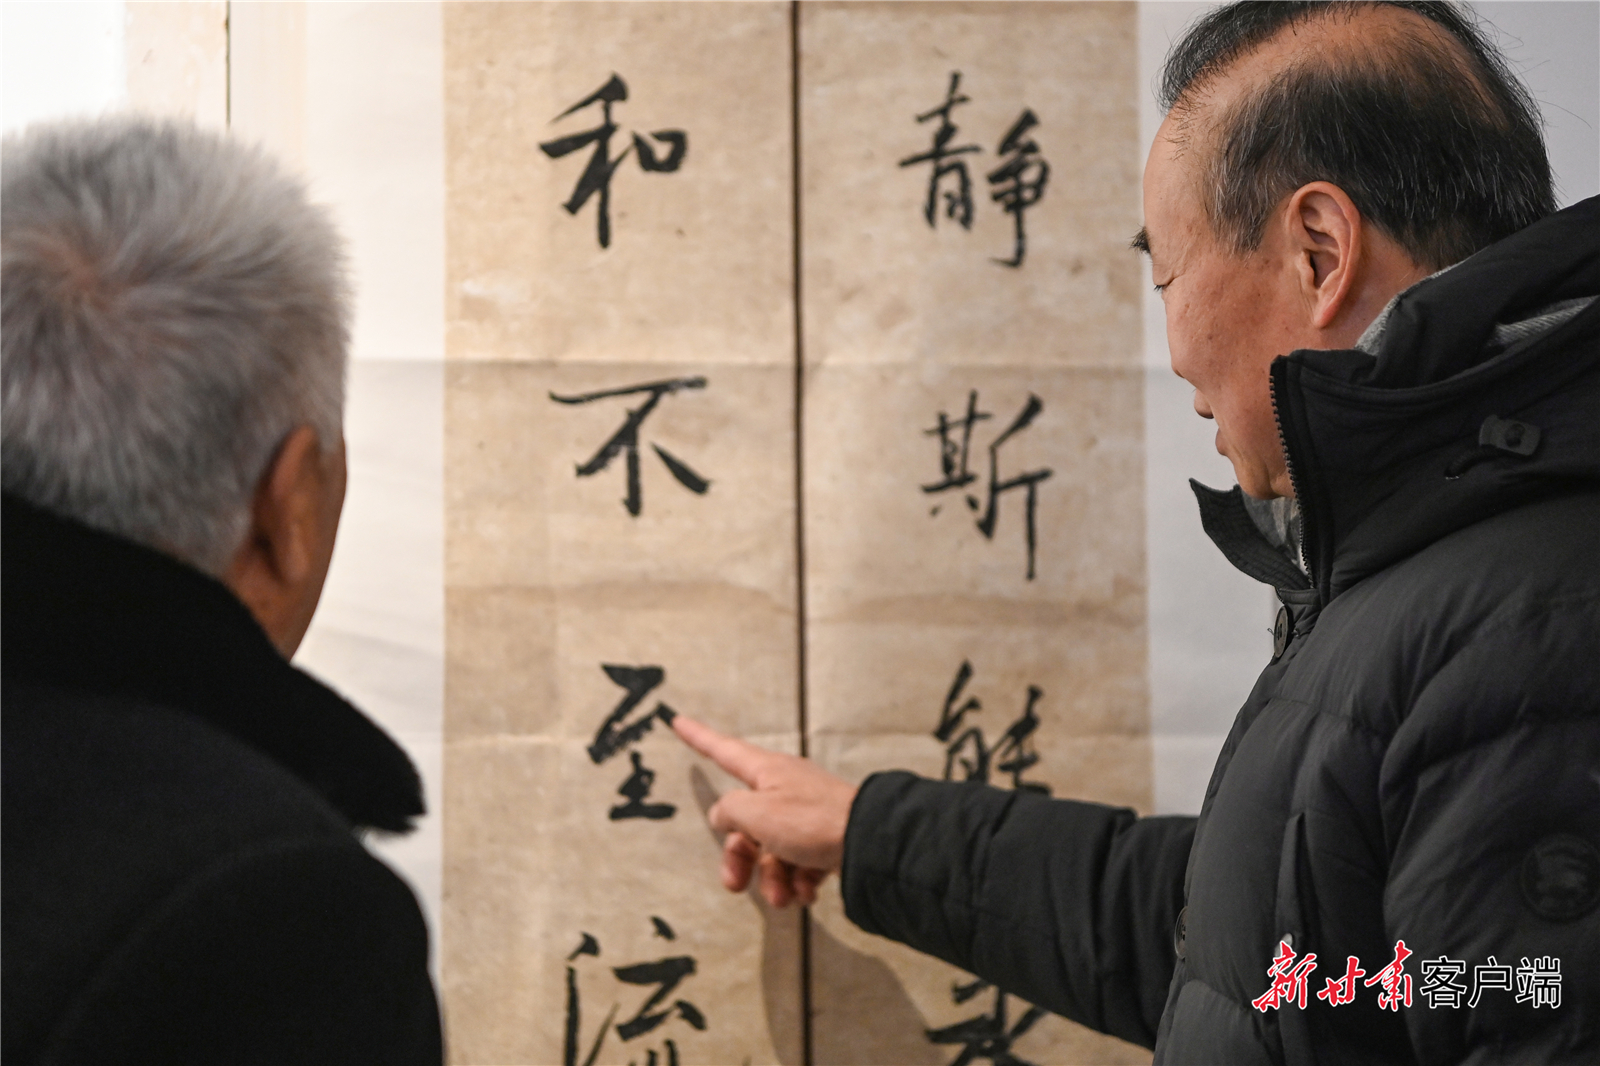 静斯能
和不至流
新甘肃客户端